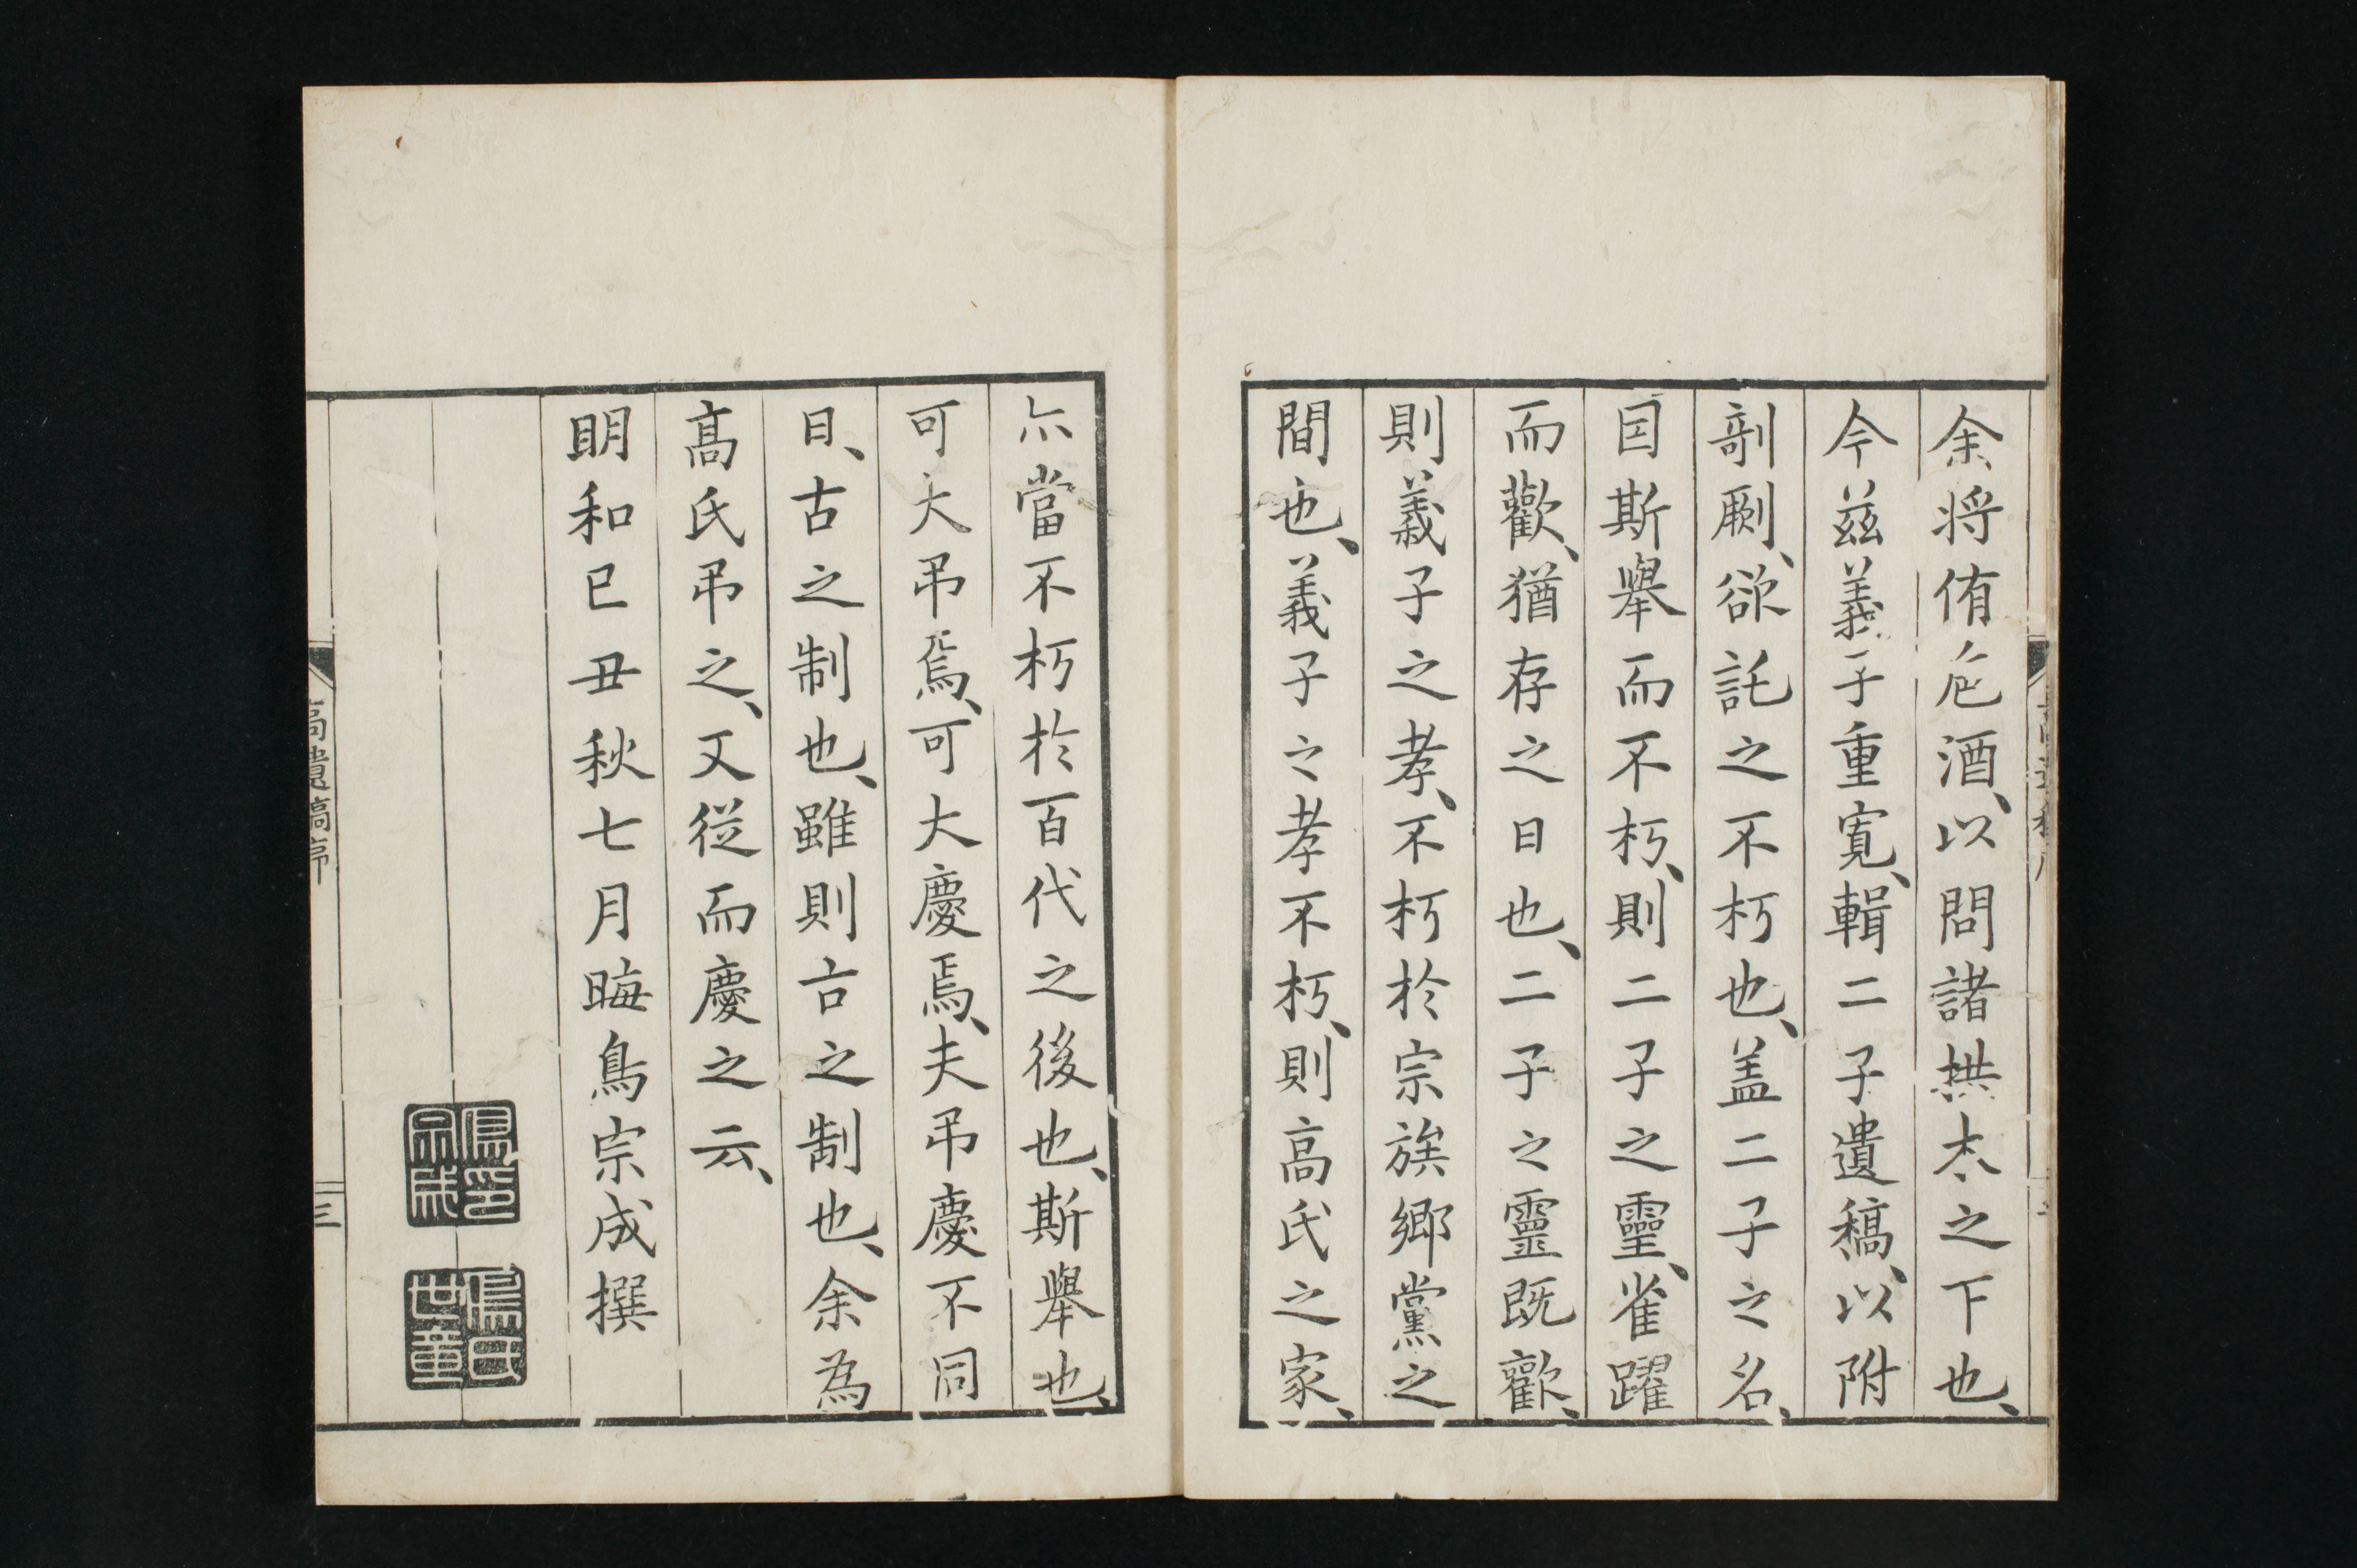 余将侑巵酒、以問諸拱木之下也、
今茲義子重寛、輯二子遺稿、以附
剞劂、欲託之不朽也、盖二子之名、
因斯擧而不朽、則二子之靈、雀躍
而歡、猶存之日也、二子之靈既歡、
則義子之孝、不朽於宗族郷黨之
間也、義子之孝不朽、則高氏之家、
亦當不朽於百代之後也、斯擧也、
可大弔焉、可大慶焉、夫弔慶不同
日、古之制也、雖則古之制也、余為
髙氏弔之、又従而慶之云、
明和己丑秋七月晦鳥宗成撰
鳥宗成印
鳥氏世章
高遺稿序
三